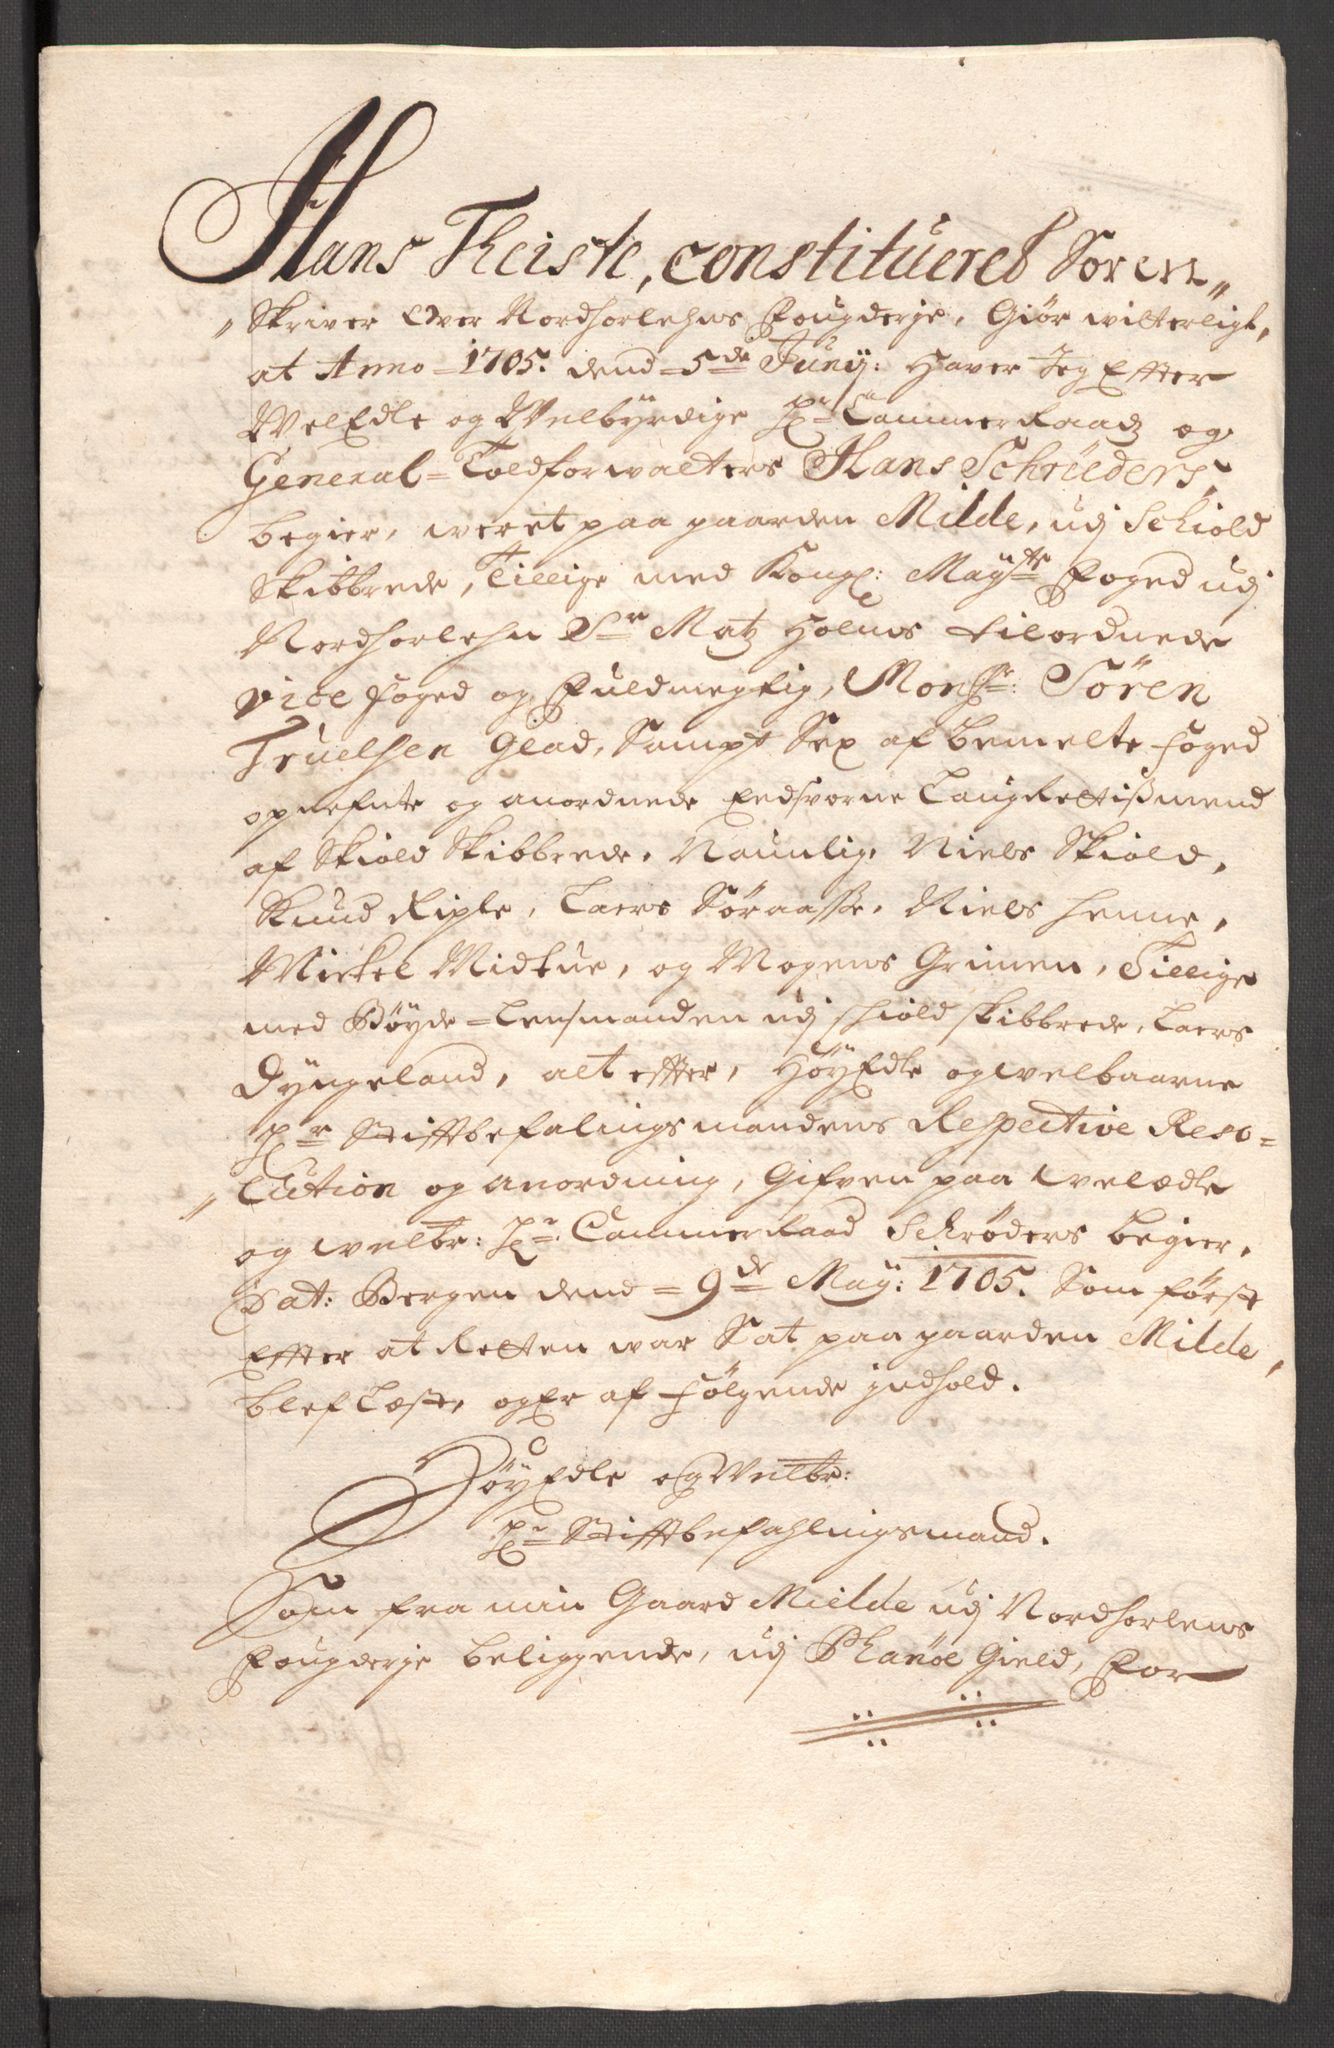 Hans Theiste, constitueret Soren„
„Skriver Over Nordhorlehns Fougderje, Giør witterligt,
at Anno 1705. dend 5de Junij: Haver Jeg Effter
WelEdle og Welbÿrdige Hr Cammer Raad og
General=Toldforwalters Hans Schrøders
begier, weret paa gaarden Milde, udj Schiold
Skibbrede, Tillige med Kongl: Mayts Foged udj
Nordhorlehn Sr Matz Holms tilordnede
vice foged og Fuldmegtig, Monsr: Sören
Truelsen Glad, Sampt Sex af bemelte foged
opnefnte og anordnede Eedsvorne Laugrettißmend
af Skiold Skibbrede, Naunlig, Niels Skiold,
Knud Riple, Laers Søraasse, Niels Henne,
Mickel Midtue, og Mogens Grimen, Tillige
med Bøyde=Lensmanden udj Schiold skibbrede, Laers
Dÿngeland, alt effter, HøyEdle og welbaarne
Hr Stifftbefalingsmandens Respective Reso=
„lution og anordning, Gifven paa welædle
og welbr: Hr. Cammer Raad Schrøders begier,
Dat: Bergen dend=9de Maÿ: 1705. Som først
Effter at Retten war Sat paa gaarden Milde,
blef Læst, og Er af følgende indhold.
HøyEdle og Welbr:
Hr Stifftbefahlingsmand.
Som fra min Gaard Mielde udj Nordhorlens
Fougderje beliggende, udj Phanöe Gield, For